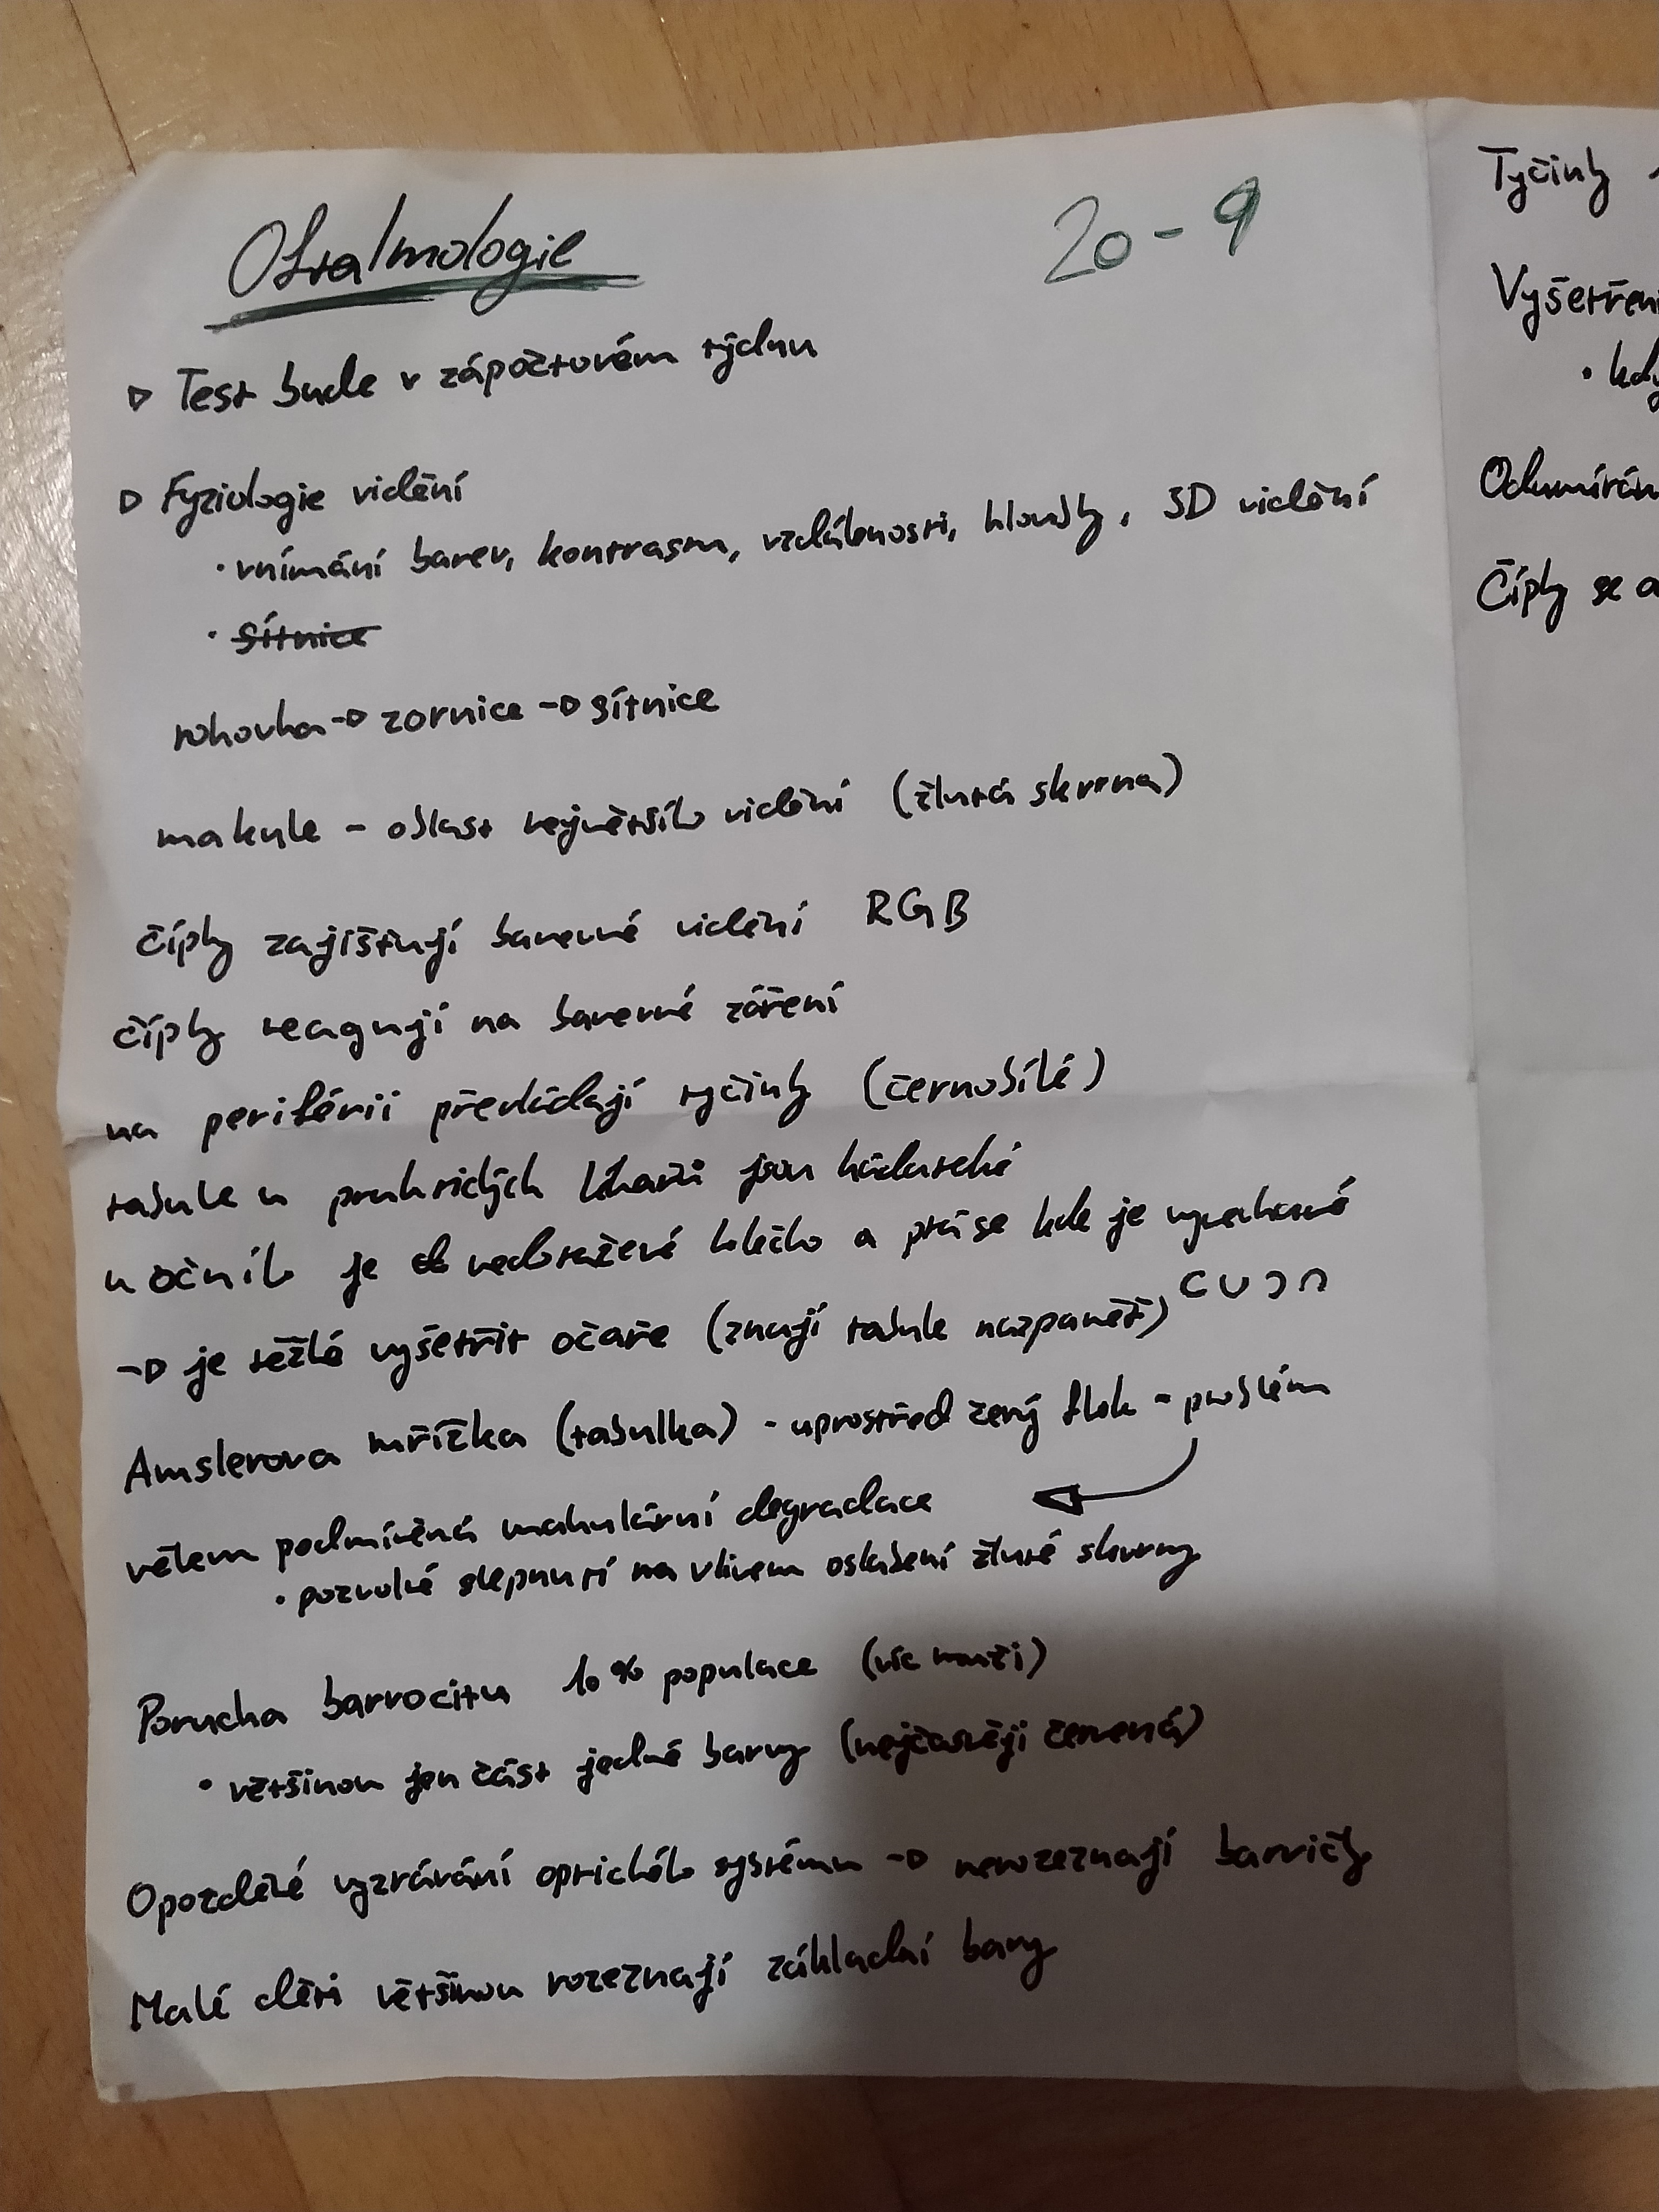 Oftalmologie
20-9
▷ Test bude v zápočtovém týdnu
▷ Fyziologie vidění
· vnímání barev, kontrastu, vzdálenosti, hloubky, 3D vidění
· sítnice
rohovka → zornice → sítnice
makule - oblast největšího vidění (žlutá skvrna)
čípky zajišťují barevné vidění RGB
čípky reagují na barevné záření
na periférii převládají tyčinky (černobílé)
tabule u praktických lékařů jsou hádatelné
u očního je nedotažené kolečko a ptá se kde je vynechané
C U Ɔ ∩
→ je těžké vyšetřit očaře (znají tabule nazpaměť)
Amslerova mřížka (tabulka) - uprostřed černý flek - problém
věkem podmíněná makulární degradace
· pozvolné slepnutí na vlivem oslabení žluté skvrny
Porucha barvocitu 10% populace (víc muži)
· většinou jen část jedné barvy (nejčastěji červená)
Opožděné vyzrávání optického systému → nerozeznají barvičky
Malé děti většinou rozeznají základní barvy
Tyčinky
Vyšetření
· kdy
Odumírán
Čípky se